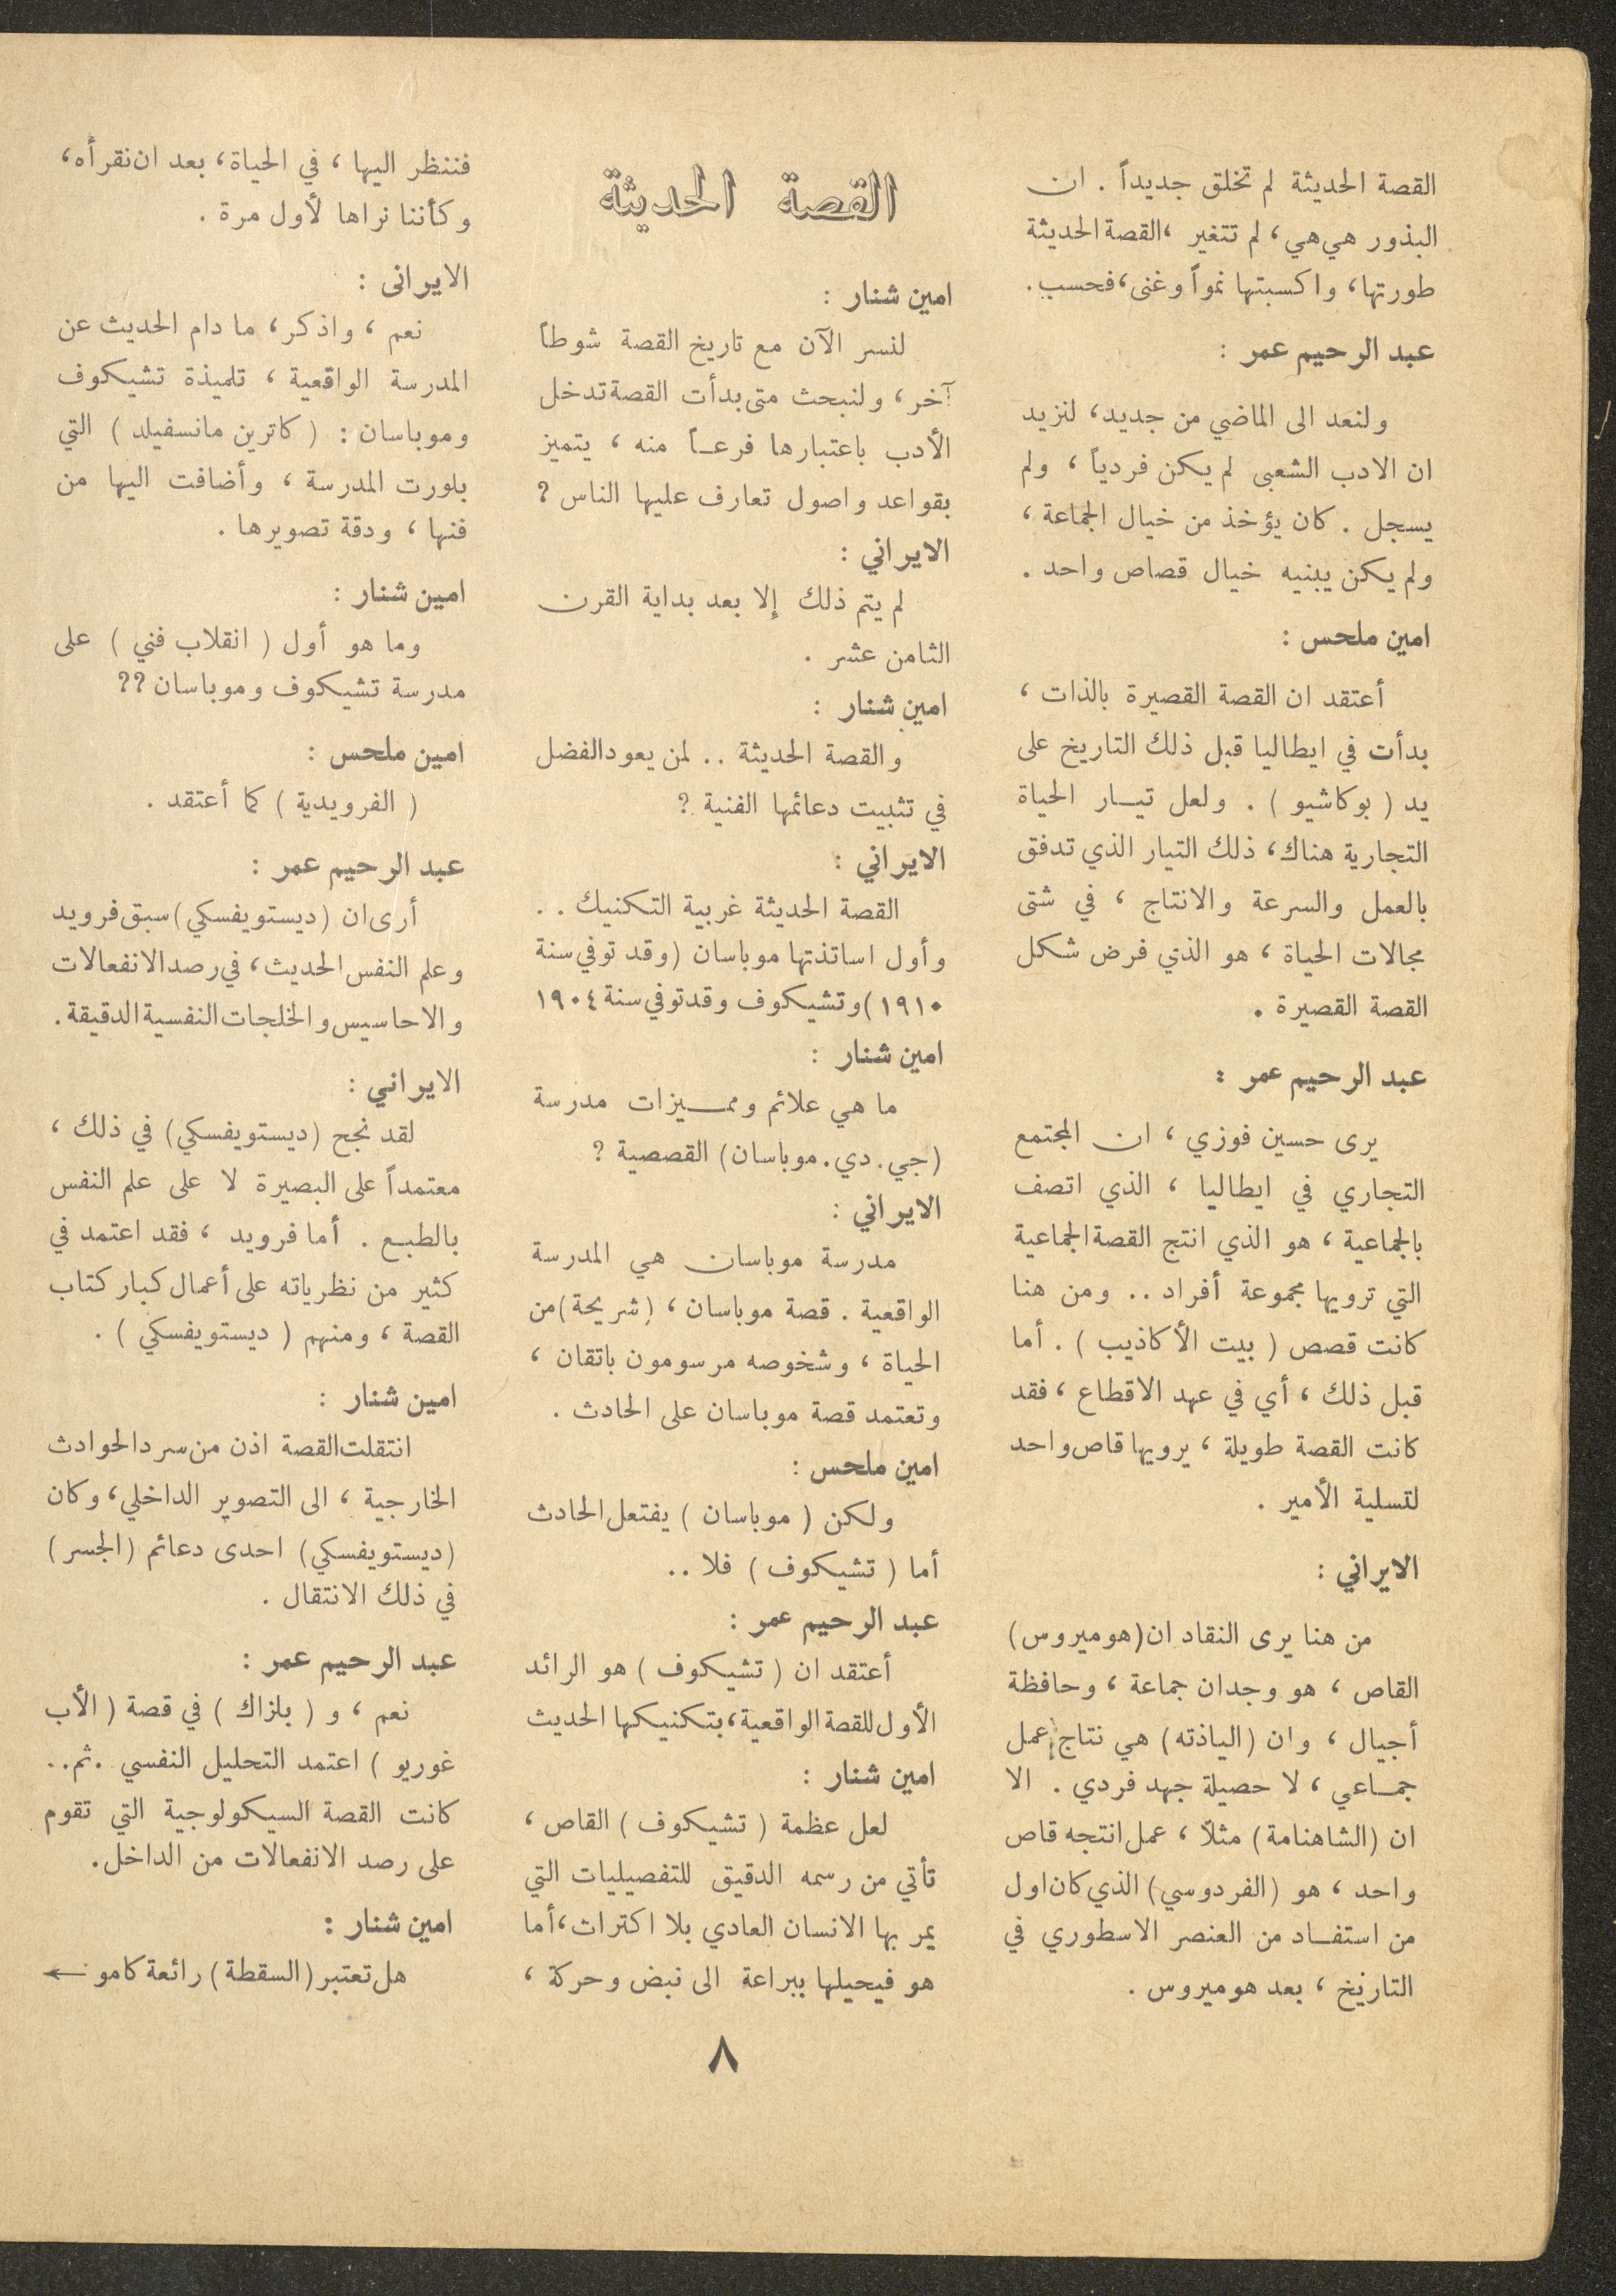 القصة الحديثة لم تخلق جديداً . ان
البذور هي هي ، لم تتغير ، القصة الحديثة
طورتها ، واكسبتها نمواً وغنى ، فحسب .
عبد الرحيم عمر :
ولنعد الى الماضي من جديد ، لنزيد
ان الادب الشعبى لم يكن فردياً ، ولم
يسجل . كان يؤخذ من خيال الجماعة ،
ولم يكن يبنيه خيال قصاص واحد .
امين ملحس :
أعتقد ان القصة القصيرة بالذات ،
بدأت في ايطاليا قبل ذلك التاريخ على
يد ( بوكاشيو ) . ولعل تيار الحياة
التجارية هناك ، ذلك التيار الذي تدفق
بالعمل والسرعة والانتاج ، في شتى
مجالات الحياة ، هو الذي فرض شكل
القصة القصيرة .
عبد الرحيم عمر :
يرى حسين فوزي ، ان المجتمع
التجاري في ايطاليا ، الذي اتصف
بالجماعية ، هو الذي انتج القصة الجماعية
التي ترويها مجموعة أفراد .. ومن هنا
كانت قصص ( بيت الأكاذيب ) . أما
قبل ذلك ، أي في عهد الاقطاع ، فقد
كانت القصة طويلة ، يرويها قاص واحد
لتسلية الأمير .
الايراني :
من هنا يرى النقاد ان (هوميروس)
القاص ، هو وجدان جماعة ، وحافظة
أجيال ، وان (الياذته) هي نتاج عمل
جماعي ، لا حصيلة جهد فردي . الا
ان (الشاهنامة) مثلاً ، عمل انتجه قاص
واحد ، هو (الفردوسي) الذي كان اول
من استفاد من العنصر الاسطوري في
التاريخ ، بعد هوميروس .
القصة الحديثة
امين شنار :
لنسر الآن مع تاريخ القصة شوطاً
آخر ، ولنبحث متى بدأت القصة تدخل
الأدب باعتبارها فرعاً منه ، يتميز
بقواعد واصول تعارف عليها الناس ؟
الايراني :
لم يتم ذلك إلا بعد بداية القرن
الثامن عشر .
امين شنار :
والقصة الحديثة .. لمن يعود الفضل
في تثبيت دعائمها الفنية ؟
الايراني :
القصة الحديثة غربية التكنيك . .
وأول اساتذتها موباسان (وقد توفي سنة
١٩١٠) وتشيكوف وقد توفي سنة ١٩٠٤
امين شنار :
ما هي علائم ومميزات مدرسة
(جي . دي . موباسان) القصصية ؟
الايراني :
مدرسة موباسان هي المدرسة
الواقعية . قصة موباسان ، (شريحة) من
الحياة ، وشخوصه مرسومون باتقان ،
وتعتمد قصة موباسان على الحادث .
امين ملحس :
ولكن ( موباسان ) يفتعل الحادث
أما ( تشيكوف ) فلا ..
عبد الرحيم عمر :
أعتقد ان ( تشيكوف ) هو الرائد
الأول للقصة الواقعية ، بتكنيكها الحديث
امين شنار :
لعل عظمة ( تشيكوف ) القاص ،
تأتي من رسمه الدقيق للتفصيليات التي
يمر بها الانسان العادي بلا اكتراث ، أما
هو فيحيلها ببراعة الى نبض وحركة ،
فننظر اليها ، في الحياة ، بعد ان نقرأه ،
وكأننا نراها لأول مرة .
الايرانى :
نعم ، واذكر ، ما دام الحديث عن
المدرسة الواقعية ، تلميذة تشيكوف
وموباسان : ( كاترين مانسفيلد ) التي
بلورت المدرسة ، وأضافت اليها من
فنها ، ودقة تصويرها .
امين شنار :
وما هو أول ( انقلاب فني ) على
مدرسة تشيكوف وموباسان ؟؟
امين ملحس :
( الفرويدية ) كما أعتقد .
عبد الرحيم عمر :
أرى ان (ديستويفسكي) سبق فرويد
وعلم النفس الحديث ، في رصد الانفعالات
والاحاسيس والخلجات النفسية الدقيقة .
الايراني :
لقد نجح (ديستويفسكي) في ذلك ،
معتمداً على البصيرة لا على علم النفس
بالطبع . أما فرويد ، فقد اعتمد في
كثير من نظرياته على أعمال كبار كتاب
القصة ، ومنهم ( ديستويفسكي ) .
امين شنار :
انتقلت القصة اذن من سرد الحوادث
الخارجية ، الى التصوير الداخلي ، وكان
(ديستويفسكي) احدى دعائم (الجسر)
في ذلك الانتقال .
عبد الرحيم عمر :
نعم ، و ( بلزاك ) في قصة ( الأب
غوريو ) اعتمد التحليل النفسي . ثم ..
كانت القصة السيكولوجية التي تقوم
على رصد الانفعالات من الداخل .
امين شنار :
هل تعتبر (السقطة) رائعة كامو ←
٨